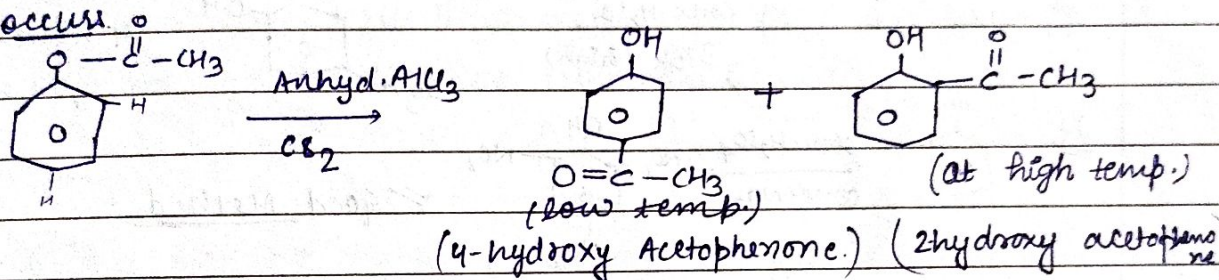 occurs.
O
O — C — CH3
H
O
H
Anhyd. AlCl3
CS2
OH
O
O=C—CH3
(low temp.)
(4-hydroxy Acetophenone.)
+
OH
O
C — CH3
O
(at high temp.)
(2hydroxy acetophenone